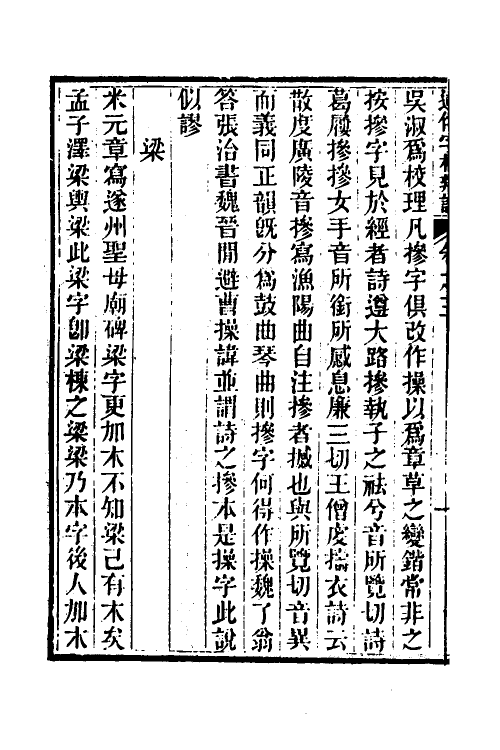 吳淑爲校理凡摻字俱改作操以爲章草之變錯常非之
按摻字見於經者詩遵大路摻執子之袪兮音所覽切詩
葛屨摻摻女手音所銜所感息廉三切王僧虔擣衣詩云
散度廣陵音摻寫漁陽曲自注摻者撼也與所覽切音異
而義同正韻旣分爲鼓曲琴曲則摻字何得作操魏了翁
答張治書魏晉閒避曹操諱並謂詩之摻本是操字此說
似謬
梁
米元章寫遂州聖母廟碑梁字更加木不知梁已有木矣
孟子澤梁輿梁此梁字卽梁棟之梁梁乃本字後人加木